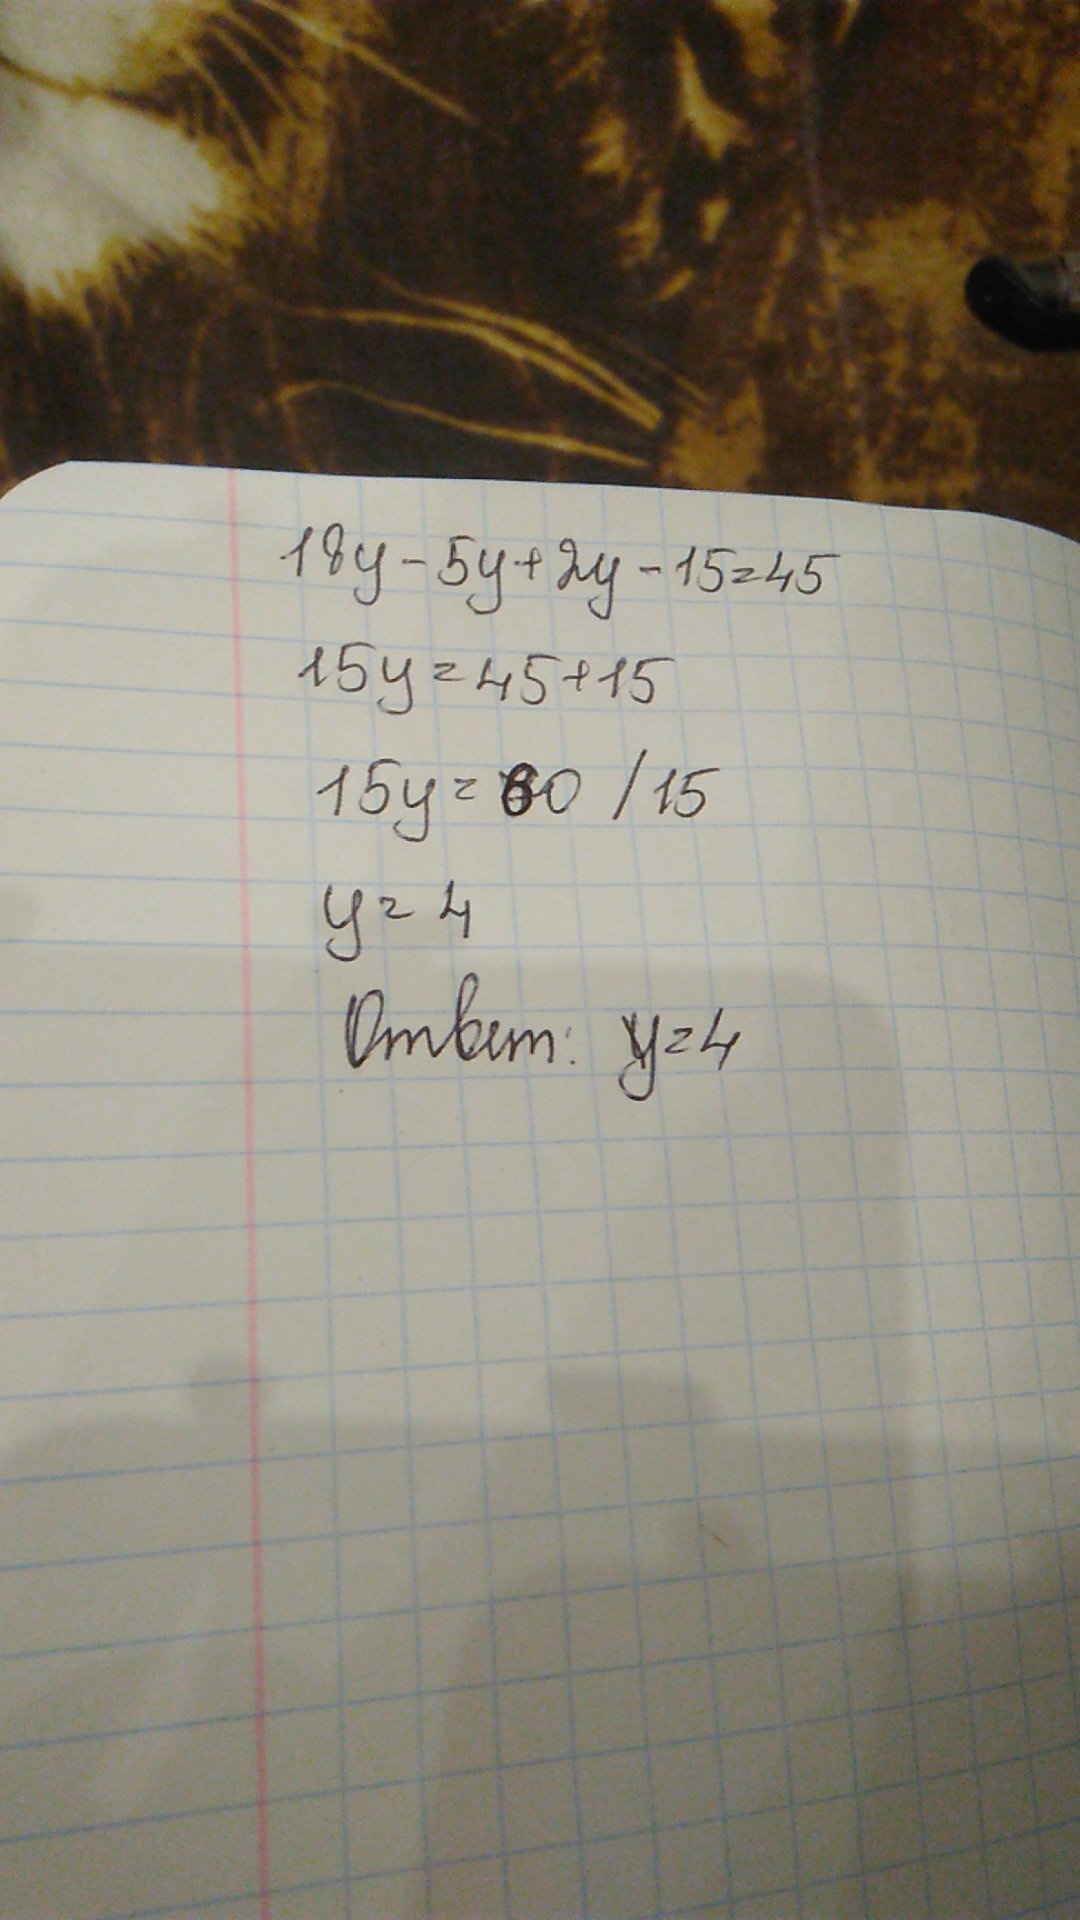 18y-5y+2y-15=45
15y=45+15
15y=60 /15
y=4
Ответ: y=4